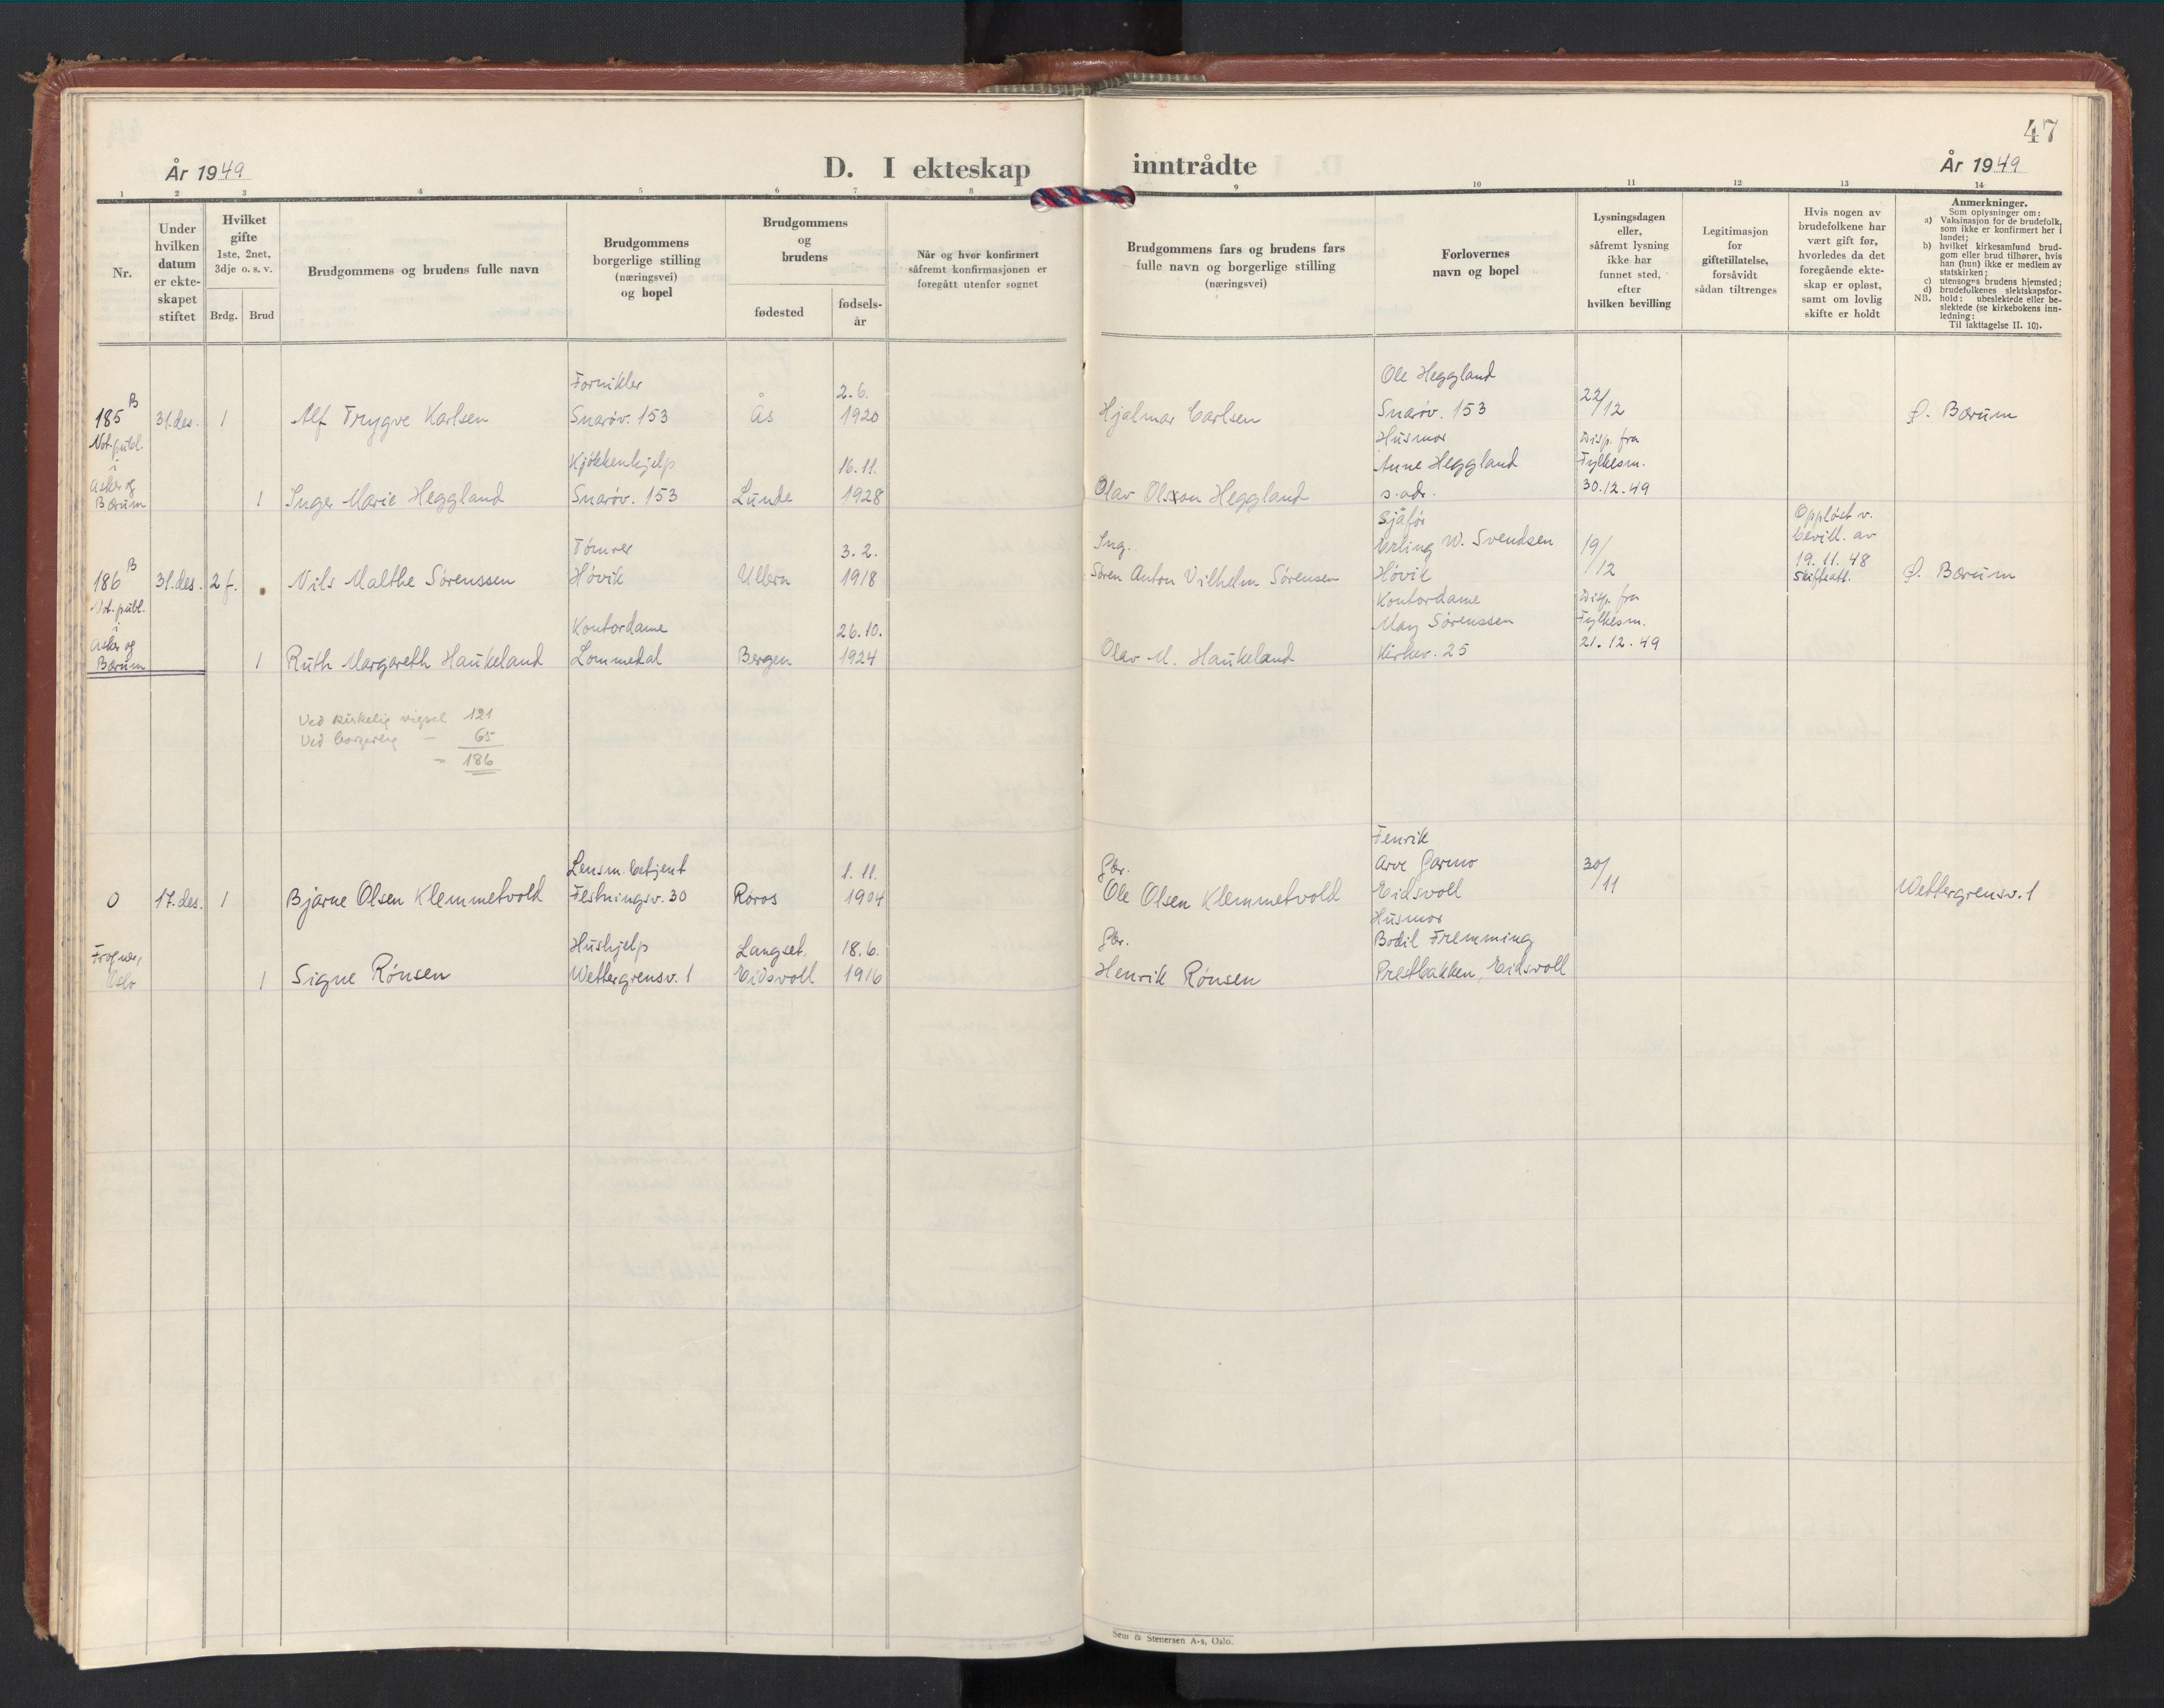 47
År 1949
D. I ekteskap inntrådte
År 1949
1 2 3 4 5 6 7 8 9 10 11 12 13 14
Nr.
Under
hvilken
datum
er ekte-
skapet
stiftet
Hvilket
gifte
1ste, 2net,
3dje o. s. v.
Brdg. Brud
Brudgommens og brudens fulle navn
Brudgommens
borgerlige stilling
(næringsvei)
og bopel
Brudgommens
og
brudens
fødested
fødsels-
år
Når og hvor konfirmert
såfremt konfirmasjonen er
foregått utenfor sognet
Brudgommens fars og brudens fars
fulle navn og borgerlige stilling
(næringsvei)
Forlovernes
navn og bopel
Lysningsdagen
eller,
såfremt lysning
ikke har
funnet sted,
efter
hvilken bevilling
Legitimasjon
for
giftetillatelse,
forsåvidt
sådan tiltrenges
Hvis nogen av
brudefolkene har
vært gift før,
hvorledes da det
foregående ekte-
skap er opløst,
samt om lovlig
skifte er holdt
Anmerkninger.
Som oplysninger om:
a) Vaksinasjon for de brudefolk,
som ikke er konfirmert her i
landet;
b) hvilket kirkesamfund brud-
gom eller brud tilhører, hvis
han (hun) ikke er medlem av
statskirken;
c) utensogns brudens hjemsted;
d) brudefolkenes slektskapsfor-
NB. hold: ubeslektede eller be-
slektede (se kirkebokens inn-
ledning:
Til iakttagelse II. 10).
185 B
Not. publ.
i
Asker og
Bærum
31. des.
1
Alf Trygve Karlsen
Fornikler
Snarøv. 153
Ås
2.6.
1920
Hjalmar Carlsen
Ole Heggland
Snarøv. 153
22/12
Ø. Bærum
1
Inger Marie Heggland
Kjøkkenhjelp
Snarøv. 153
Lunde
16.11.
1928
Olav Olsson Heggland
Husmor
Anne Heggland
s. adr.
Disp. fra
Fylkesm.
30.12.49
186 B
Not. publ.
i
Asker og
Bærum
31. des.
2 f.
Nils Malthe Sørenssen
Tømrer
Høvik
Ullern
3.2.
1918
Ing.
Søren Anton Vilhelm Sørensen
Sjåfør
Erling W. Svendsen
Høvik
19/12
Oppløst v.
bevill. av
19.11.48
Skifteatt.
Ø. Bærum
1
Ruth Margareth Haukeland
Kontordame
Lommedal
Bergen
26.10.
1924
Olav M. Haukeland
Kontordame
May Sørenssen
Kirkev. 25
Disp. fra
Fylkesm.
21.12.49
Ved kirkelig vigsel 121
Ved borgerlig — 65
= 186
0
Frogner,
Oslo
17. des.
1
Bjarne Olsen Klemmetvold
Lensm. betjent
Festningsv. 30
Røros
1.11.
1904
Gbr.
Ole Olsen Klemmetvold
Fenrik
Arve Garmo
Eidsvoll
30/11
Wettergrensv. 1
1
Signe Rønsen
Hushjelp
Wettergrensv. 1
Langset,
Eidsvoll
18.6.
1916
Gbr.
Henrik Rønsen
Husmor
Bodil Fremming
Prestbakken, Eidsvoll
Sem & Stenersen A-s, Oslo.